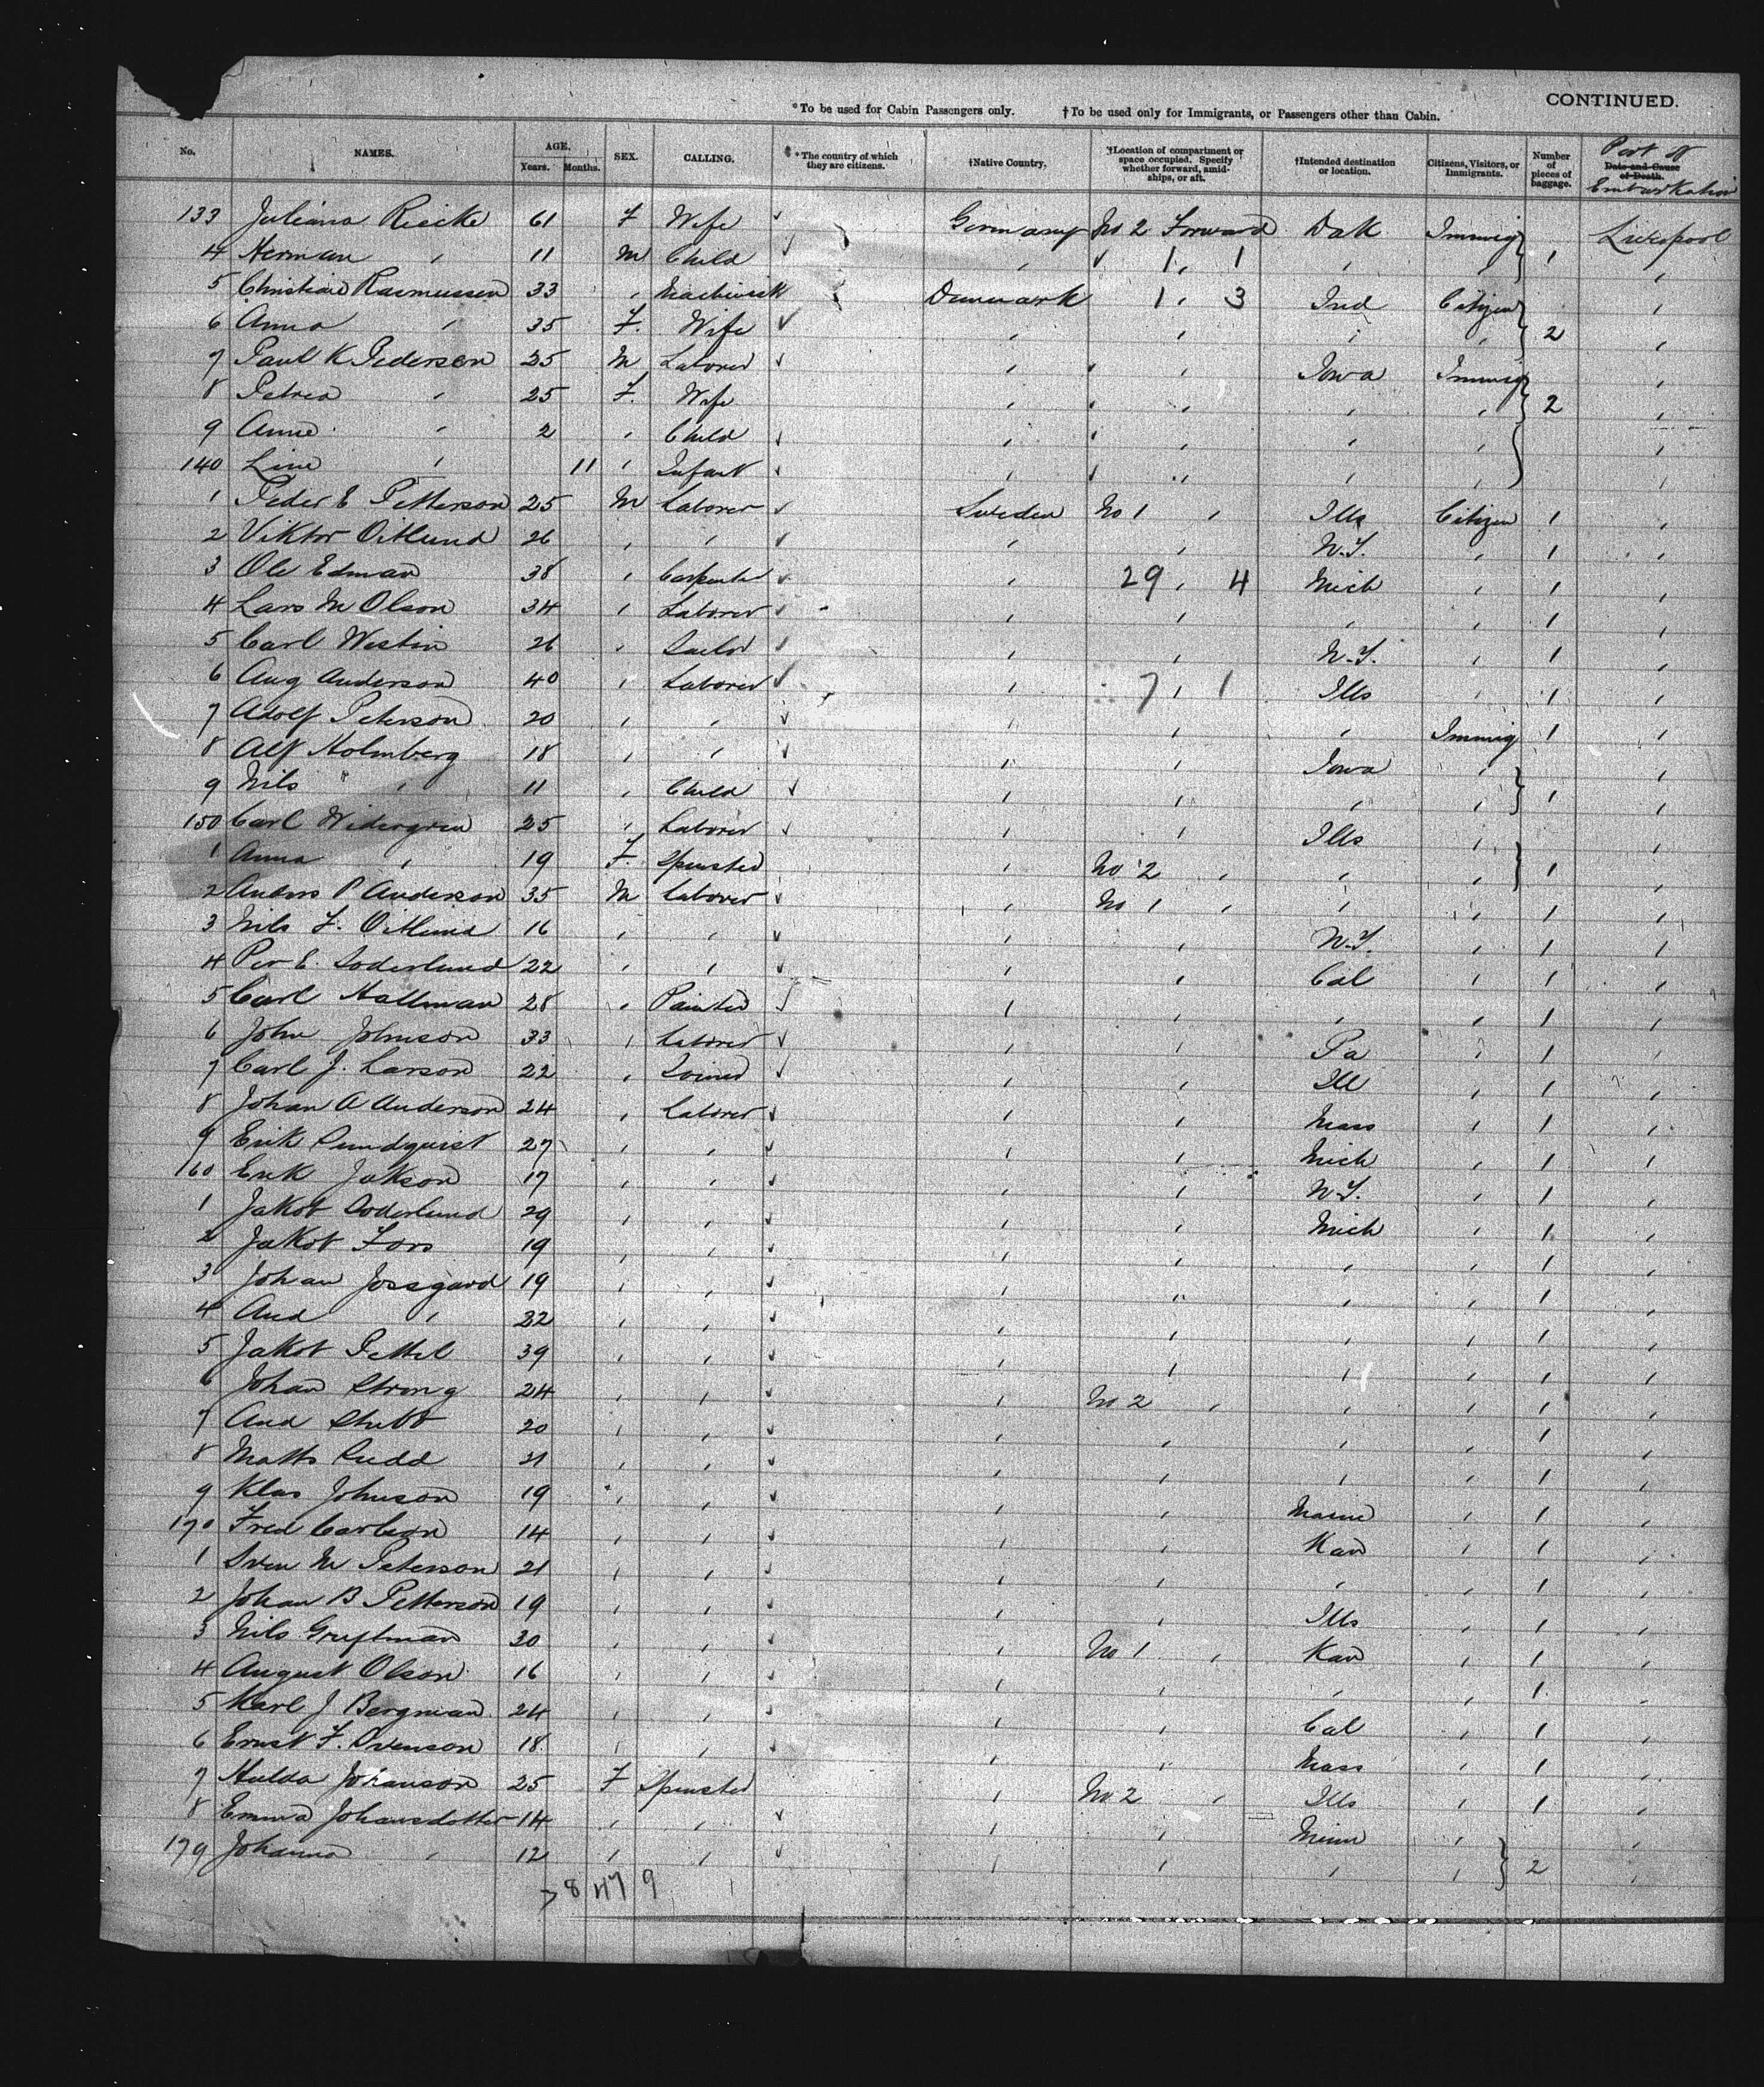 CONTINUED.
*To be used for Cabin Passengers only. †To be used only for Immigrants, or Passengers other than Cabin.
No. NAMES. AGE. Years. Months. SEX. CALLING. *The country of which they are citizens. †Native Country. †Location of compartment or space occupied. Specify whether forward, amidships, or aft. †Intended destination or location. Citizens, Visitors, or Immigrants. Number of pieces of baggage. Date and Cause of Death. Port of Embarkation
133 Juliana Riecke 61 F Wife ✓ Germany No 2 Forward Dak Immig Liverpool
4 Herman " 11 M Child ✓ " ✓ 1 , 1 " " 1 "
5 Christian Rasmussen 33 " Machinist Denmark 1 , 3 Ind Citizen "
6 Anna " 35 F. Wife ✓ " " " " 2 "
7 Paul K Pedersen 25 M Laborer ✓ " " " Iowa Immig "
8 Petrea " 25 F. Wife " " " " " 2 "
9 Anne " 2 " Child ✓ " " " " " "
140 Line " 11 " Infant ✓ " " " " " "
1 Peder E Petterson 25 M Laborer ✓ Sweden No 1 " Ills Citizen 1 "
2 Viktor Oitlund 26 " " ✓ " " N.Y. " 1 "
3 Ole Edman 38 " Carpenter ✓ " 29 , 4 Mich " 1 "
4 Lars M Olson 34 " Laborer ✓ " " " " 1 "
5 Carl Westin 26 " Sailor ✓ " " N.Y. " 1 "
6 Aug Anderson 40 " Laborer ✓ " 7 , 1 Ills " 1 "
7 Adolf Peterson 20 " " ✓ " " " Immig 1 "
8 Alf Holmberg 18 " " ✓ " " Iowa " "
9 Nils " 11 " Child ✓ " " " " 1 "
150 Carl Widergren 25 " Laborer ✓ " " Ills " "
1 Anna " 19 F. Spinster " No 2 " " " 1 "
2 Anders P Anderson 35 M Laborer ✓ " No 1 " " " 1 "
3 Nils F. Oitlund 16 " " ✓ " " N.Y. " 1 "
4 Per E. Soderlund 22 " " ✓ " " Cal " 1 "
5 Carl Hallman 28 " Painter ✓ " " " " 1 "
6 John Johnson 33 " Laborer ✓ " " Pa " 1 "
7 Carl J. Larson 22 " Joiner ✓ " " Ill " 1 "
8 Johan A Anderson 24 " Laborer ✓ " " Mass " 1 "
9 Erik Sundquist 27 " " ✓ " " Mich " 1 "
160 Erik Jakson 17 " " ✓ " " N.Y. " 1 "
1 Jakob Soderlund 29 " " ✓ " " Mich " 1 "
2 Jakob Fors 19 " " ✓ " " " " 1 "
3 Johan Jossgard 19 " " ✓ " " " " 1 "
4 And " 22 " " ✓ " " " " 1 "
5 Jakob Pettel 39 " " ✓ " " " " 1 "
6 Johan Streng 24 " " ✓ " No 2 " " " 1 "
7 And Stubb 20 " " ✓ " " " " 1 "
8 Matts Rudd 21 " " ✓ " " " " 1 "
9 Klas Johnson 19 " " ✓ " " Maine " 1 "
170 Fred Carlson 14 " " ✓ " " Kan " 1 "
1 Sven M Peterson 21 " " ✓ " " " " 1 "
2 Johan B Petterson 19 " " ✓ " " Ills " 1 "
3 Nils 30 " " ✓ " No 1 " Kan " 1 "
4 August Olson 16 " " ✓ " " " " 1 "
5 Karl J Bergman 24 " " ✓ " " Cal " 1 "
6 Ernst F. Svenson 18 " " ✓ " " Mass " 1 "
7 Hulda Johanson 25 F Spinster " No 2 " Ills " 1 "
8 Emma Johansdotter 14 " " ✓ " " Minn " "
179 Johanna " 12 " " ✓ " " " " 2 "
7 8 47 9